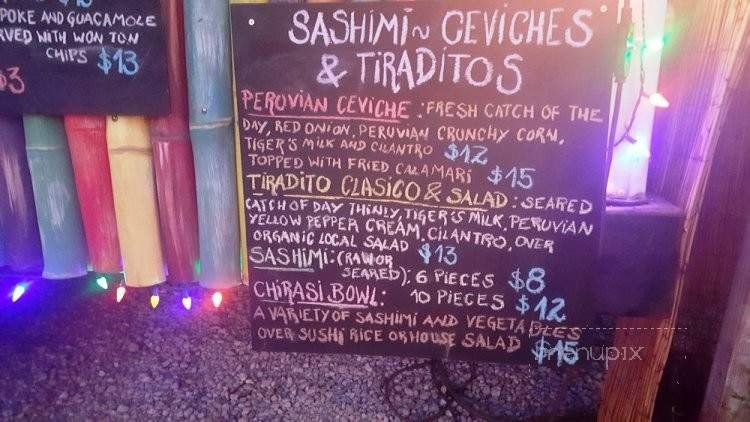 POKE AND GUACAMOLE
RVED WITH WON TON
CHIPS $13
$3
SASHIMI ~ CEVICHES
& TIRADITOS
PERUVIAN CEVICHE : FRESH CATCH OF THE
DAY, RED ONION, PERUVIAN CRUNCHY CORN,
TIGER'S MILK AND CILANTRO $12
TOPPED WITH FRIED CALAMARI $15
TIRADITO CLASICO & SALAD : SEARED
CATCH OF DAY THINLY, TIGER'S MILK, PERUVIAN
YELLOW PEPPER CREAM, CILANTRO, OVER
ORGANIC LOCAL SALAD $13
SASHIMI: (RAW OR
SEARED); 6 PIECES $8
10 PIECES $12
CHIRASI BOWL:
A VARIETY OF SASHIMI AND VEGETABLES
OVER SUSHI RICE OR HOUSE SALAD $15
menupix